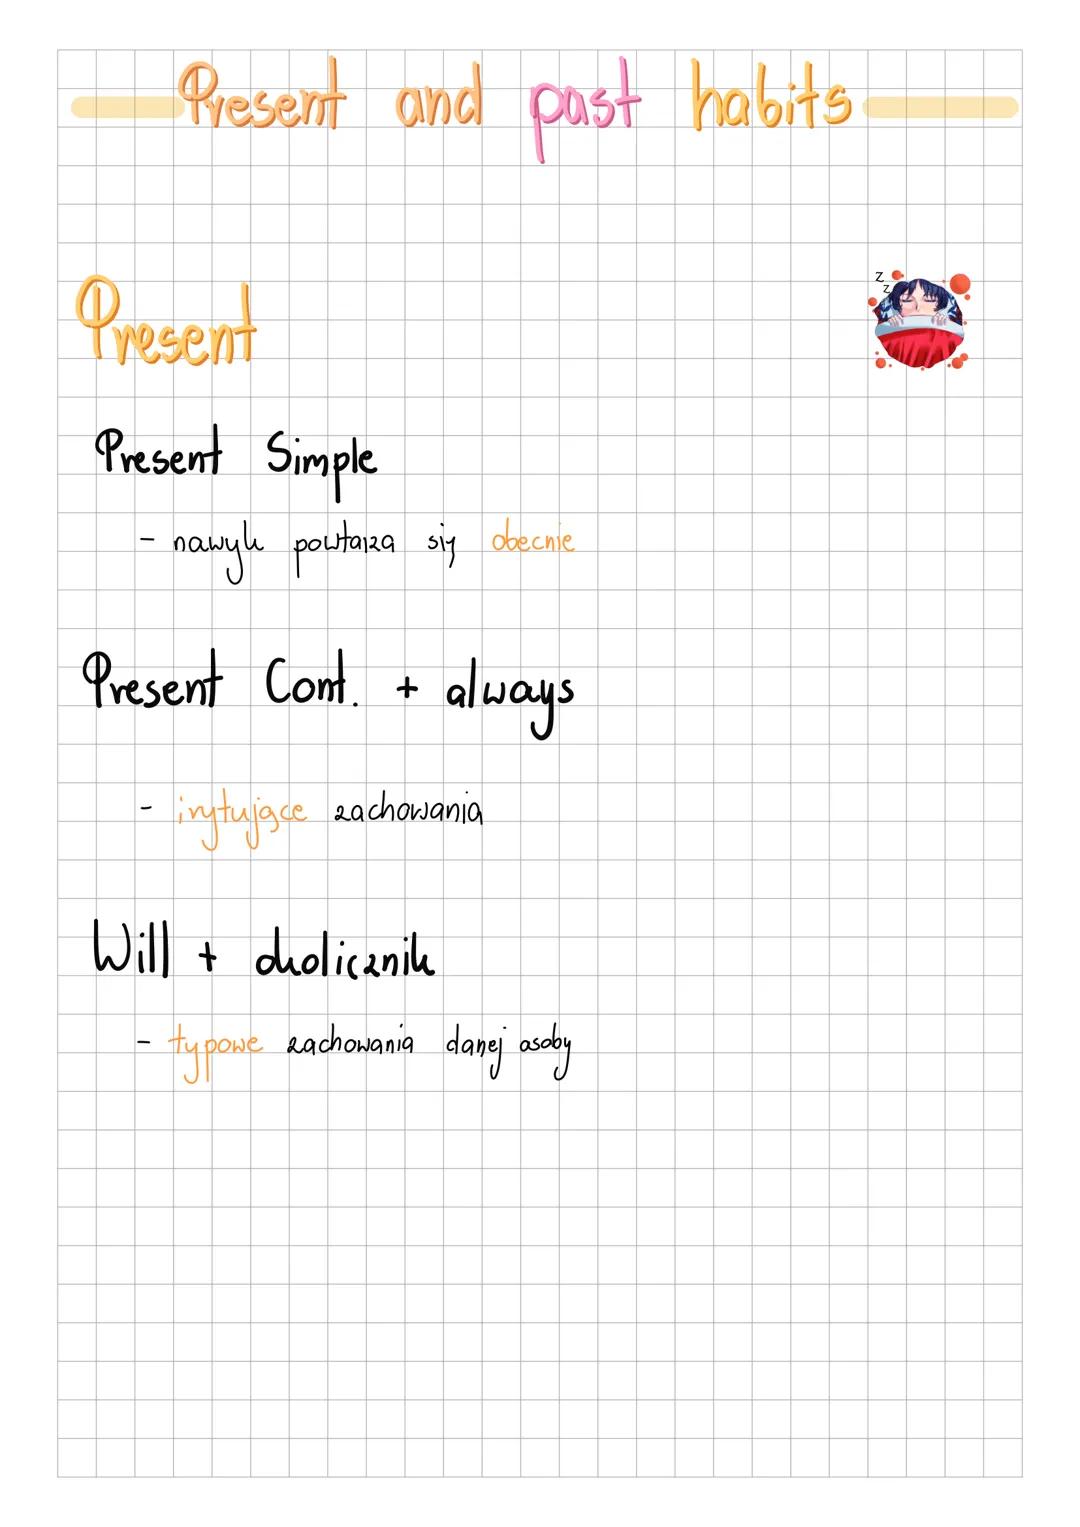 Present and past habits
Present
z
z
Present Simple
- nawyk powtarza się obecnie
Present Cont. + always
- irytujące zachowania
Will + okolicznik
- typowe zachowania danej osoby